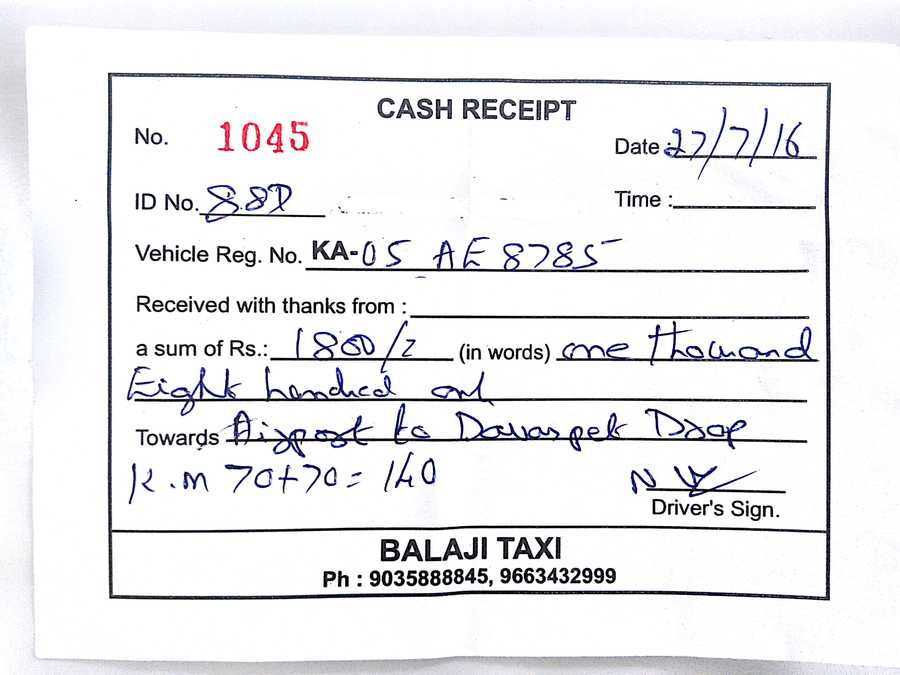 CASH RECEIPT
No. 1045
Date : 27/7/16
ID No. 88D
Time :
Vehicle Reg. No. KA-05 AE 8785
Received with thanks from :
a sum of Rs.: 1800/= (in words) one thousand
Eight hundred onl
Towards Airport to Dovaspet Drop
K.m 70+70= 140
Driver's Sign.
BALAJI TAXI
Ph : 9035888845, 9663432999